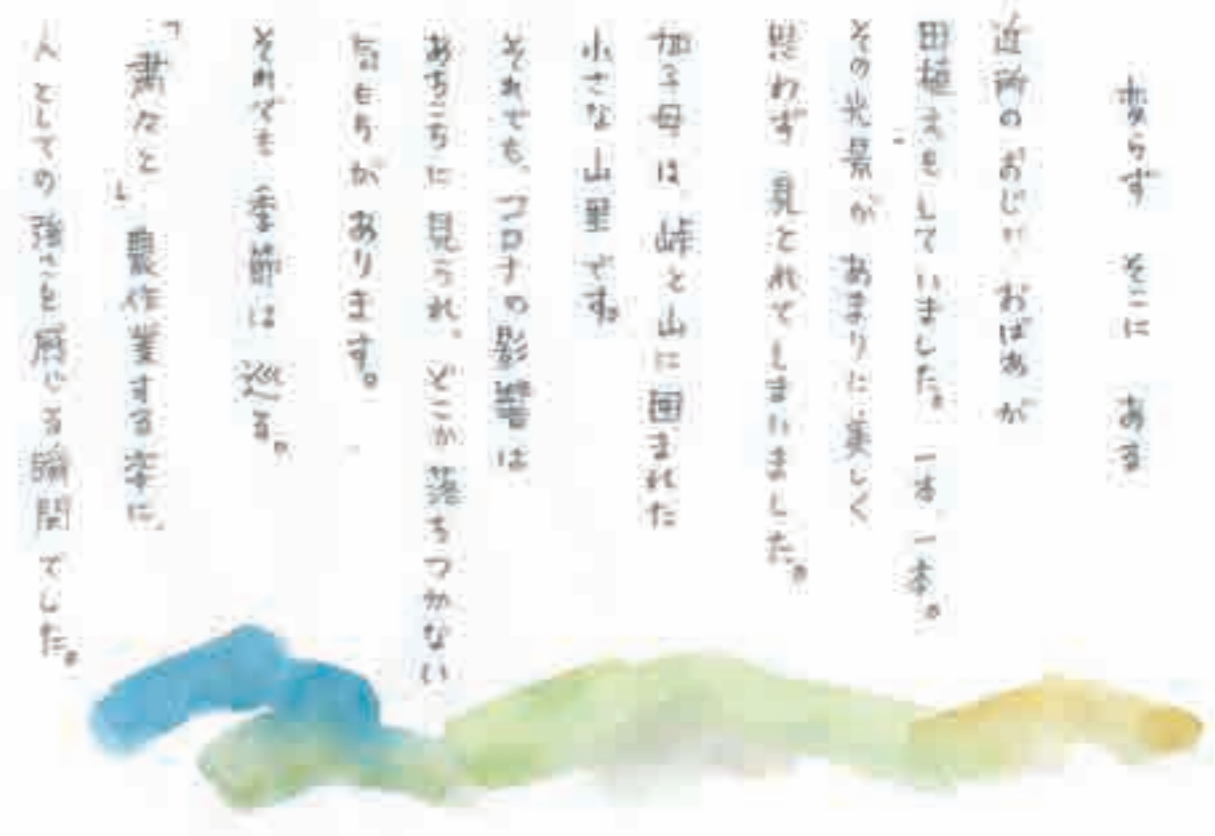 変らず そこに ある
近所のおじじ、おばあが
田植えをしていました。一本、一本。
その光景が あまりに美しく
思わず 見とれてしまいました。
加子母は 峠と山に囲まれた
小さな山里です。
それでも、コロナの影響は
あちこちに見られ、どこか落ちつかない
気もちが あります。
それでも 季節は 巡る。
「粛々と」農作業する姿に、
人としての強さを感じる瞬間でした。